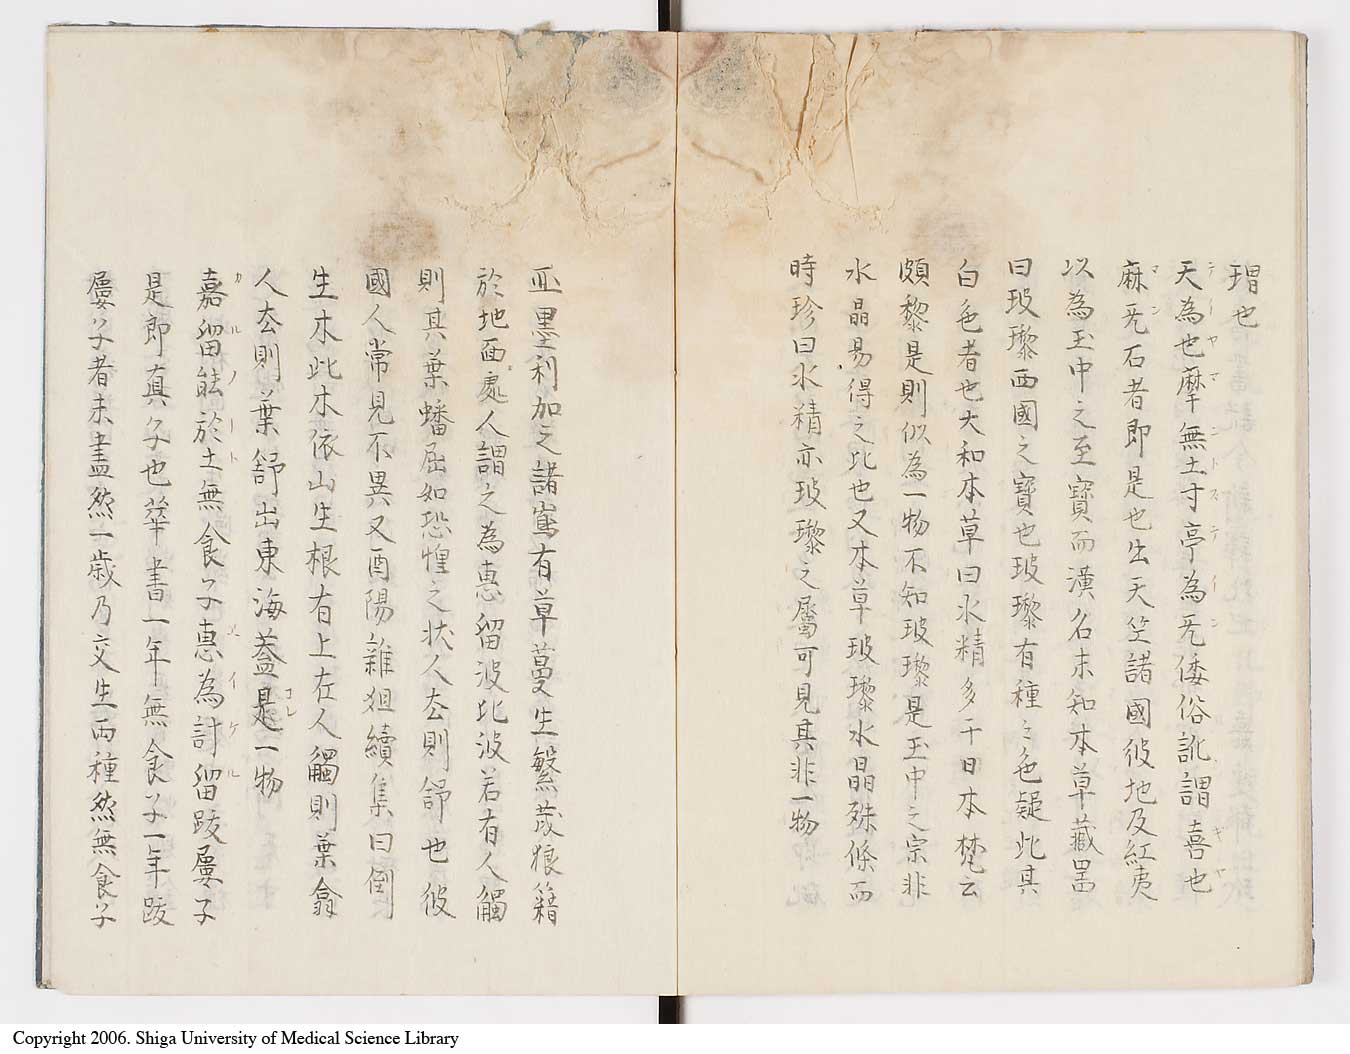 瑁也
天為也摩無土寸亭為旡倭俗訛謂喜也
テーヤマニトステイン
ギヤ
麻旡石者即是也出天竺諸國彼地及紅夷
マン
以為玉中之至寶而漢名未知本草藏器
曰玻瓈西國之寶也玻瓈有種之色疑此其
白色者也大和本草曰水精多于日本梵云
頗黎是則似為一物不知玻瓈是玉中之宗非
水晶易得之比也又本草玻瓈水晶殊條而
時珍曰水精亦玻瓈之屬可見其非一物
亚墨利加之諸嶌有草蔓生繁茂狼籍
於地面處人謂之為惠留波比波若有人觸
則其葉蟠屈如恐惶之状人去則舒也彼
國人常見不異又酉陽雜俎續集曰倒
生木此木依山生根有上在人觸則葉翕
人去則葉舒出東海蓋是一物
コレ
嘉留能於土無食子惠為討留跋屢子
カルノート
メイケル
是即真子也華書一年無食子一年跋
屢子者未盡然一歳乃交生两種然無食子
Copyright 2006. Shiga University of Medical Science Library